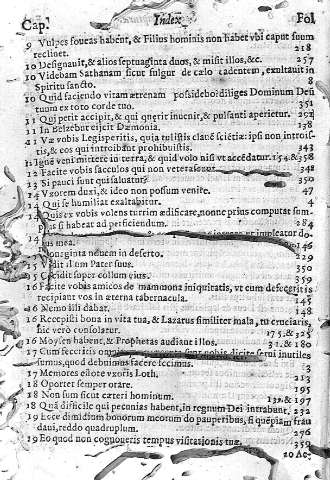 Cap. Index Fol.
9 Vulpes foueas habent, & Filius hominis non habet vbi caput suum
reclinet. 218
10 Designauit, & alios septuaginta duos, & misit illos, &c. 257
10 Videbam Sathanam sicut fulgur de cælo cadentem, exultauit in
Spiritu sancto. 8
10 Quid faciendo vitam æternam possidebo? diliges Dominum Deū
tuum ex toto corde tuo. 351
11 Qui petit accipit, & qui quærit inuenit, & pulsanti aperietur. 292
11 In Belzebut eijcit Dæmonia. 138
11 Væ vobis Legisperitis, quia tulistis clauē sciētiæ: ipsi non introis-
tis, & eos qui introibant prohibuistis. 343
12 Ignē veni mittere in terrā, & quid volo nisi vt accēdatur. 154. & 358
12 Facite vobis sacculos qui non veterascunt. 348
13 Si pauci sunt qui saluātur? 350
14 Vxorem duxi, & ideo non possum venire. 47
14 Qui se humiliat exaltabitur. 4
14 Quis ex vobis volens turrim ædificare, nonne prius computat sum-
ptus si habeat ad perficiendum. 284
14 vt impleatur do-
mus mea. 146
15 Nonaginta nouem in deserto. 229
15 Vidit illum Pater suus. 30
15 Cecidit super collum eius. 359
16 Facite vobis amicos de mammona iniquitatis, vt cum defeceritis
recipiant vos in æterna tabernacula. 145
16 Nemo illi dabat. 148
16 Recepisti bona in vita tua, & Lazarus similiter mala, tu cruciaris,
hic verò consolatur. 175. &
16 Moysen habent, & Prophetas audiant illos. 31. & 180
17 Cum feceritis omnia sunt vobis dicite serui inutiles
sumus, quod debuimus facere fecimus. 3
17 Memores estote vxoris Loth. 213
18 Oportet semper orare. 211
18 Non sum sicut cæteri hominum. 132. & 197
18 Quā difficile qui pecunias habent, in regnum Dei intrabunt. 232
19 Ecce dimidium bonorum meorum do pauperibus, si quēpiam frau
daui, reddo quadruplum. 276
19 Eo quod non cognoueris tempus visitationis tuæ. 359
20 Ac: